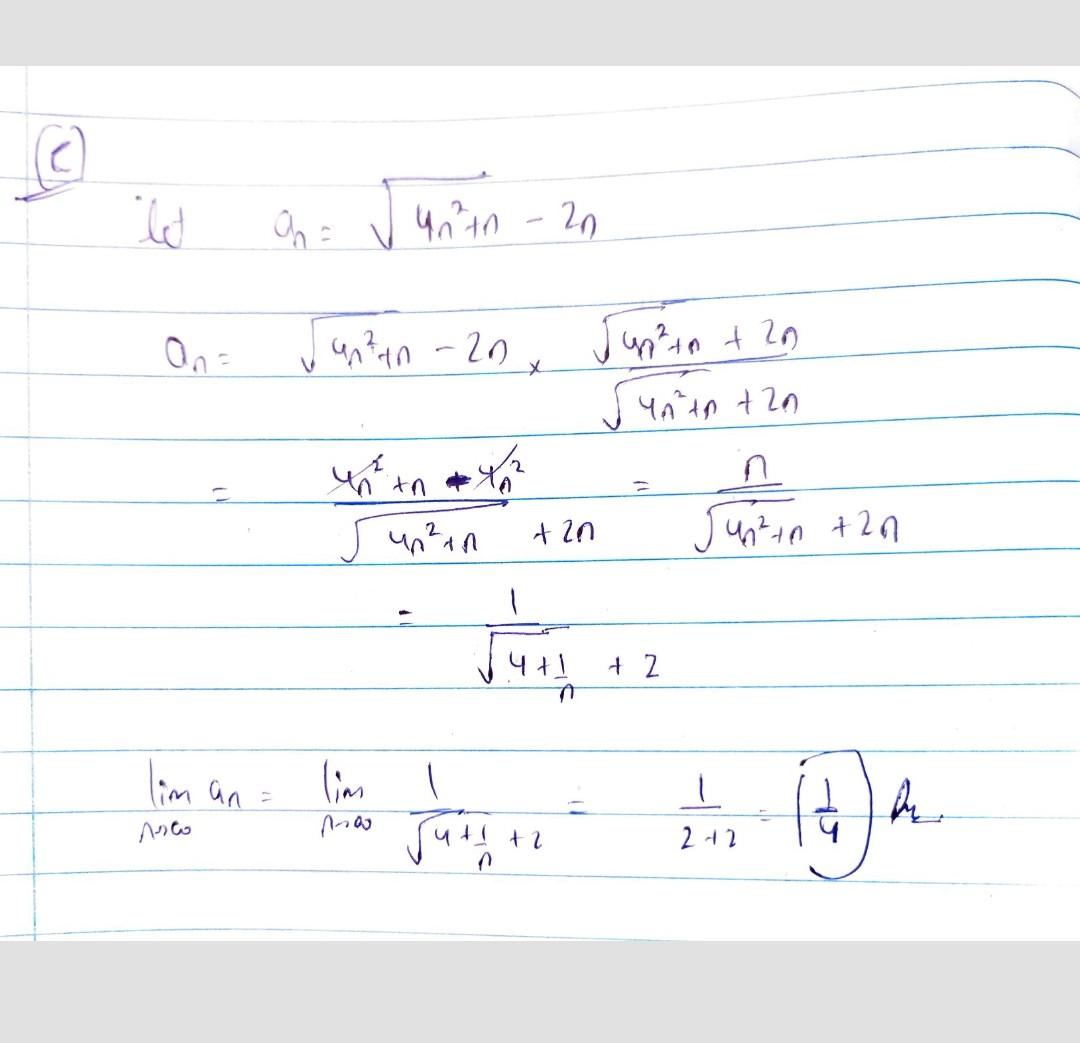 (C)
let aₙ = √(4n²+n) - 2n
aₙ = √(4n²+n) - 2n × (√(4n²+n) + 2n)/(√(4n²+n) + 2n)
= (4n² + n - 4n²)/(√(4n²+n) + 2n) = n/(√(4n²+n) + 2n)
= 1/(√(4+1/n) + 2)
lim n→∞ aₙ = lim n→∞ 1/(√(4+1/n) + 2) = 1/(2+2) = (1/4)